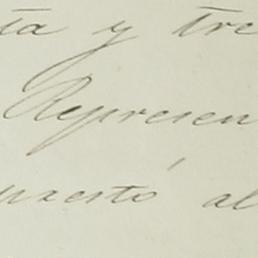 ta y tre
Represen
puesto al